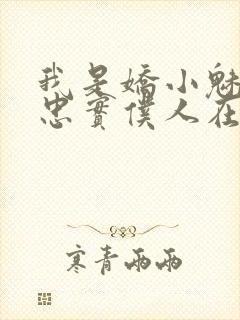 我是嬌小魅
忠實僕人在
寒青雨雨